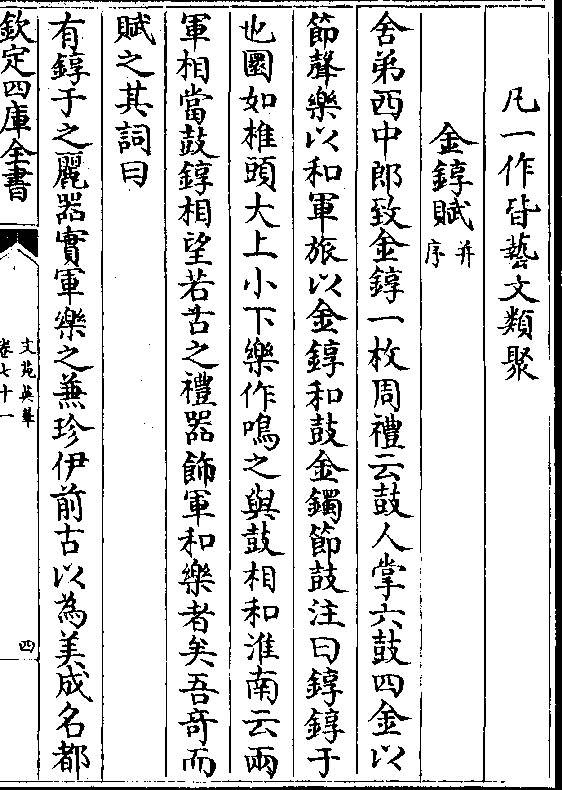 凡一作皆藝文類聚
金錞賦并序
舍弟西中郎致金錞一枚周禮云鼓人掌六鼓四金以
節聲樂以和軍旅以金錞和鼓金鐲節鼓注曰錞錞于
也圜如椎頭大上小下樂作鳴之與鼓相和淮南云兩
軍相當鼓錞相望若古之禮器飾軍和樂者矣吾竒而
賦之其詞曰
有錞于之麗器實軍樂之兼珍伊前古以為美成名都
欽定四庫全書
文苑英華
卷七十一
四